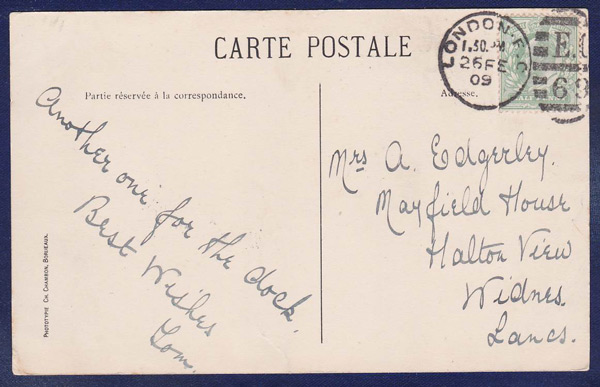 CARTE POSTALE
LONDON.E.C
1.30.PM
26 FE
09
E.C
63
Partie réservée à la correspondance.
Adresse.
Another one for the dock.
Best Wishes
Tom.
Mrs A. Edgerley.
Mayfield House
Halton View
Widnes.
Lancs.
PHOTOTYPIE CH. CHAMBON, BORDEAUX.